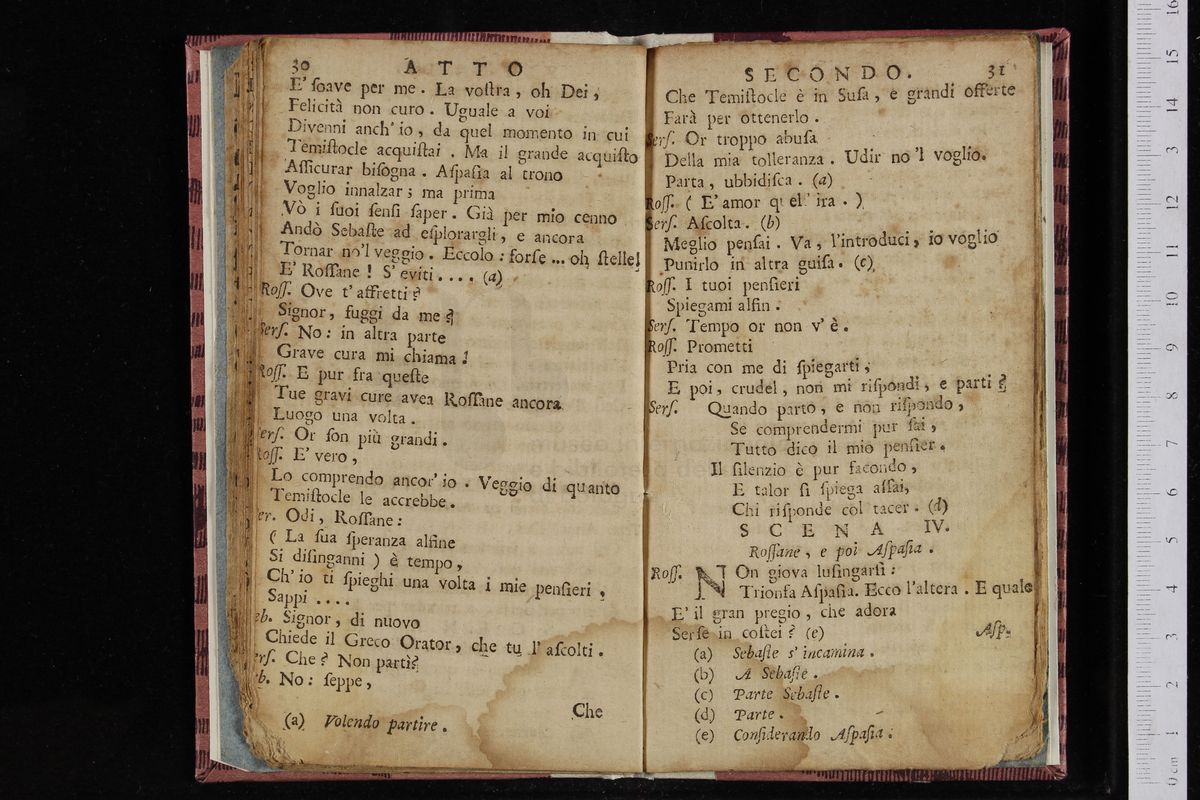 30 ATTO
E' ſoave per me. La voſtra, oh Dei,
Felicità non curo. Uguale a voi
Divenni anch' io, da quel momento in cui
Temiſtocle acquiſtai. Ma il grande acquiſto
Aſſicurar biſogna. Aſpaſia al trono
Voglio innalzar; ma prima
Vò i ſuoi ſenſi ſaper. Già per mio cenno
Andò Sebaſte ad eſplorargli, e ancora
Tornar no'l veggio. Eccolo: forſe ... oh ſtelle!
E' Roſſane! S' eviti.... (a)
Roſſ. Ove t' affretti?
Signor, fuggi da me?
Serſ. No: in altra parte
Grave cura mi chiama!
Roſſ. E pur fra queſte
Tue gravi cure avea Roſſane ancora
Luogo una volta.
erſ. Or ſon più grandi.
Roſſ. E' vero,
Lo comprendo ancor' io. Veggio di quanto
Temiſtocle le accrebbe.
er. Odi, Roſſane:
( La ſua ſperanza alfine
Si diſinganni ) è tempo,
Ch' io ti ſpieghi una volta i mie penſieri,
Sappi ....
eb. Signor, di nuovo
Chiede il Greco Orator, che tu l' aſcolti.
erſ. Che? Non partì?
eb. No: ſeppe,
Che
(a) Volendo partire.
SECONDO. 31
Che Temiſtocle è in Suſa, e grandi offerte
Farà per ottenerlo.
Serſ. Or troppo abuſa
Della mia tolleranza. Udir no'l voglio.
Parta, ubbidiſca. (a)
Roſſ. ( E' amor q el' ira. )
Serſ. Aſcolta. (b)
Meglio penſai. Va, l'introduci, io voglio
Punirlo in altra guiſa. (c)
Roſſ. I tuoi penſieri
Spiegami alfin.
Serſ. Tempo or non v' è.
Roſſ. Prometti
Pria con me di ſpiegarti,
E poi, crudel, non mi riſpondi, e parti?
Serſ. Quando parto, e non riſpondo,
Se comprendermi pur ſai,
Tutto dico il mio penſier.
Il ſilenzio è pur facondo,
E talor ſi ſpiega aſſai,
Chi riſponde col tacer. (d)
SCENA IV.
Roſſane, e poi Aſpaſia.
Roſſ. NOn giova luſingarſi:
Trionfa Aſpaſia. Ecco l'altera. E quale
E' il gran pregio, che adora
Serſe in coſtei? (e)
Aſp.
(a) Sebaſte s' incamina.
(b) A Sebaſte.
(c) Parte Sebaſte.
(d) Parte.
(e) Conſiderando Aſpaſia.
0 cm 1 2 3 4 5 6 7 8 9 10 11 12 3 14 15 16